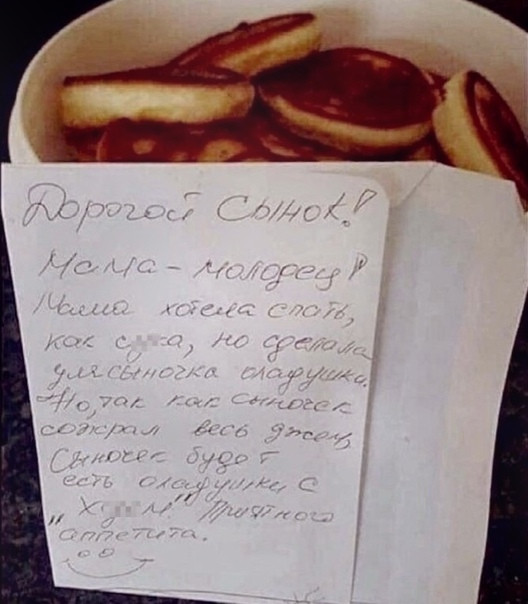 Дорогой Сынок!
Мама - молодец!
Мама хотела спать,
как с а, но сделала
для сыночка оладушки.
Но, так как сыночек
сожрал весь джем,
Сыночек будет
есть оладушки с
х м" Приятного
"аппетита.